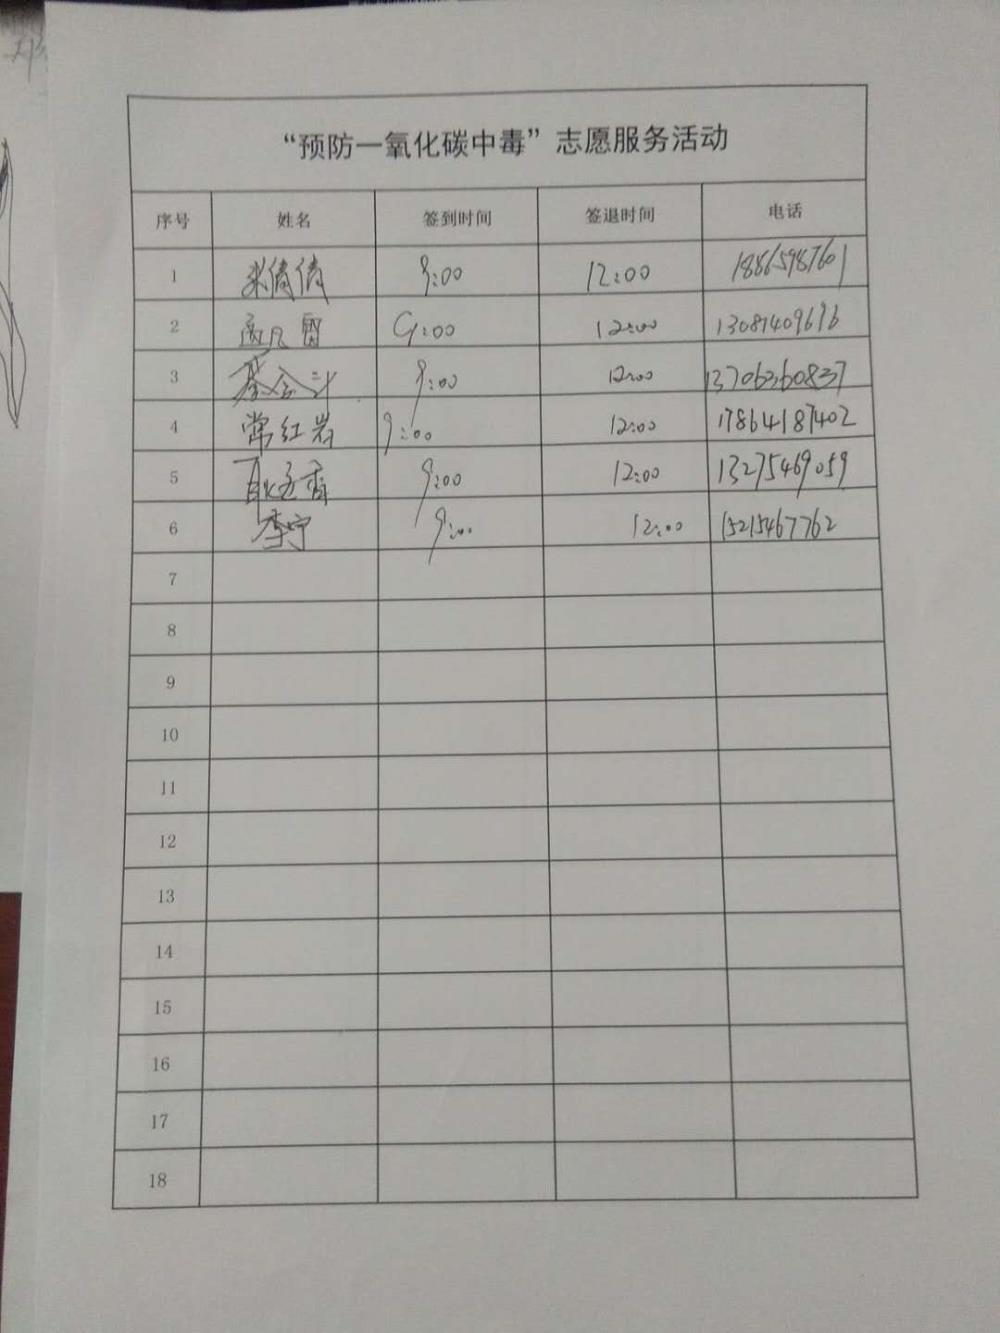 “预防一氧化碳中毒”志愿服务活动
序号 姓名 签到时间 签退时间 电话
1 倩倩 9:00 12:00 18865987601
2 9:00 12:00 13081409696
3 9:00 12:00 13706360837
4 常红岩 9:00 12:00 17864187402
5 9:00 12:00 13275469059
6 李宁 9:00 12:00 15215467762
7
8
9
10
11
12
13
14
15
16
17
18